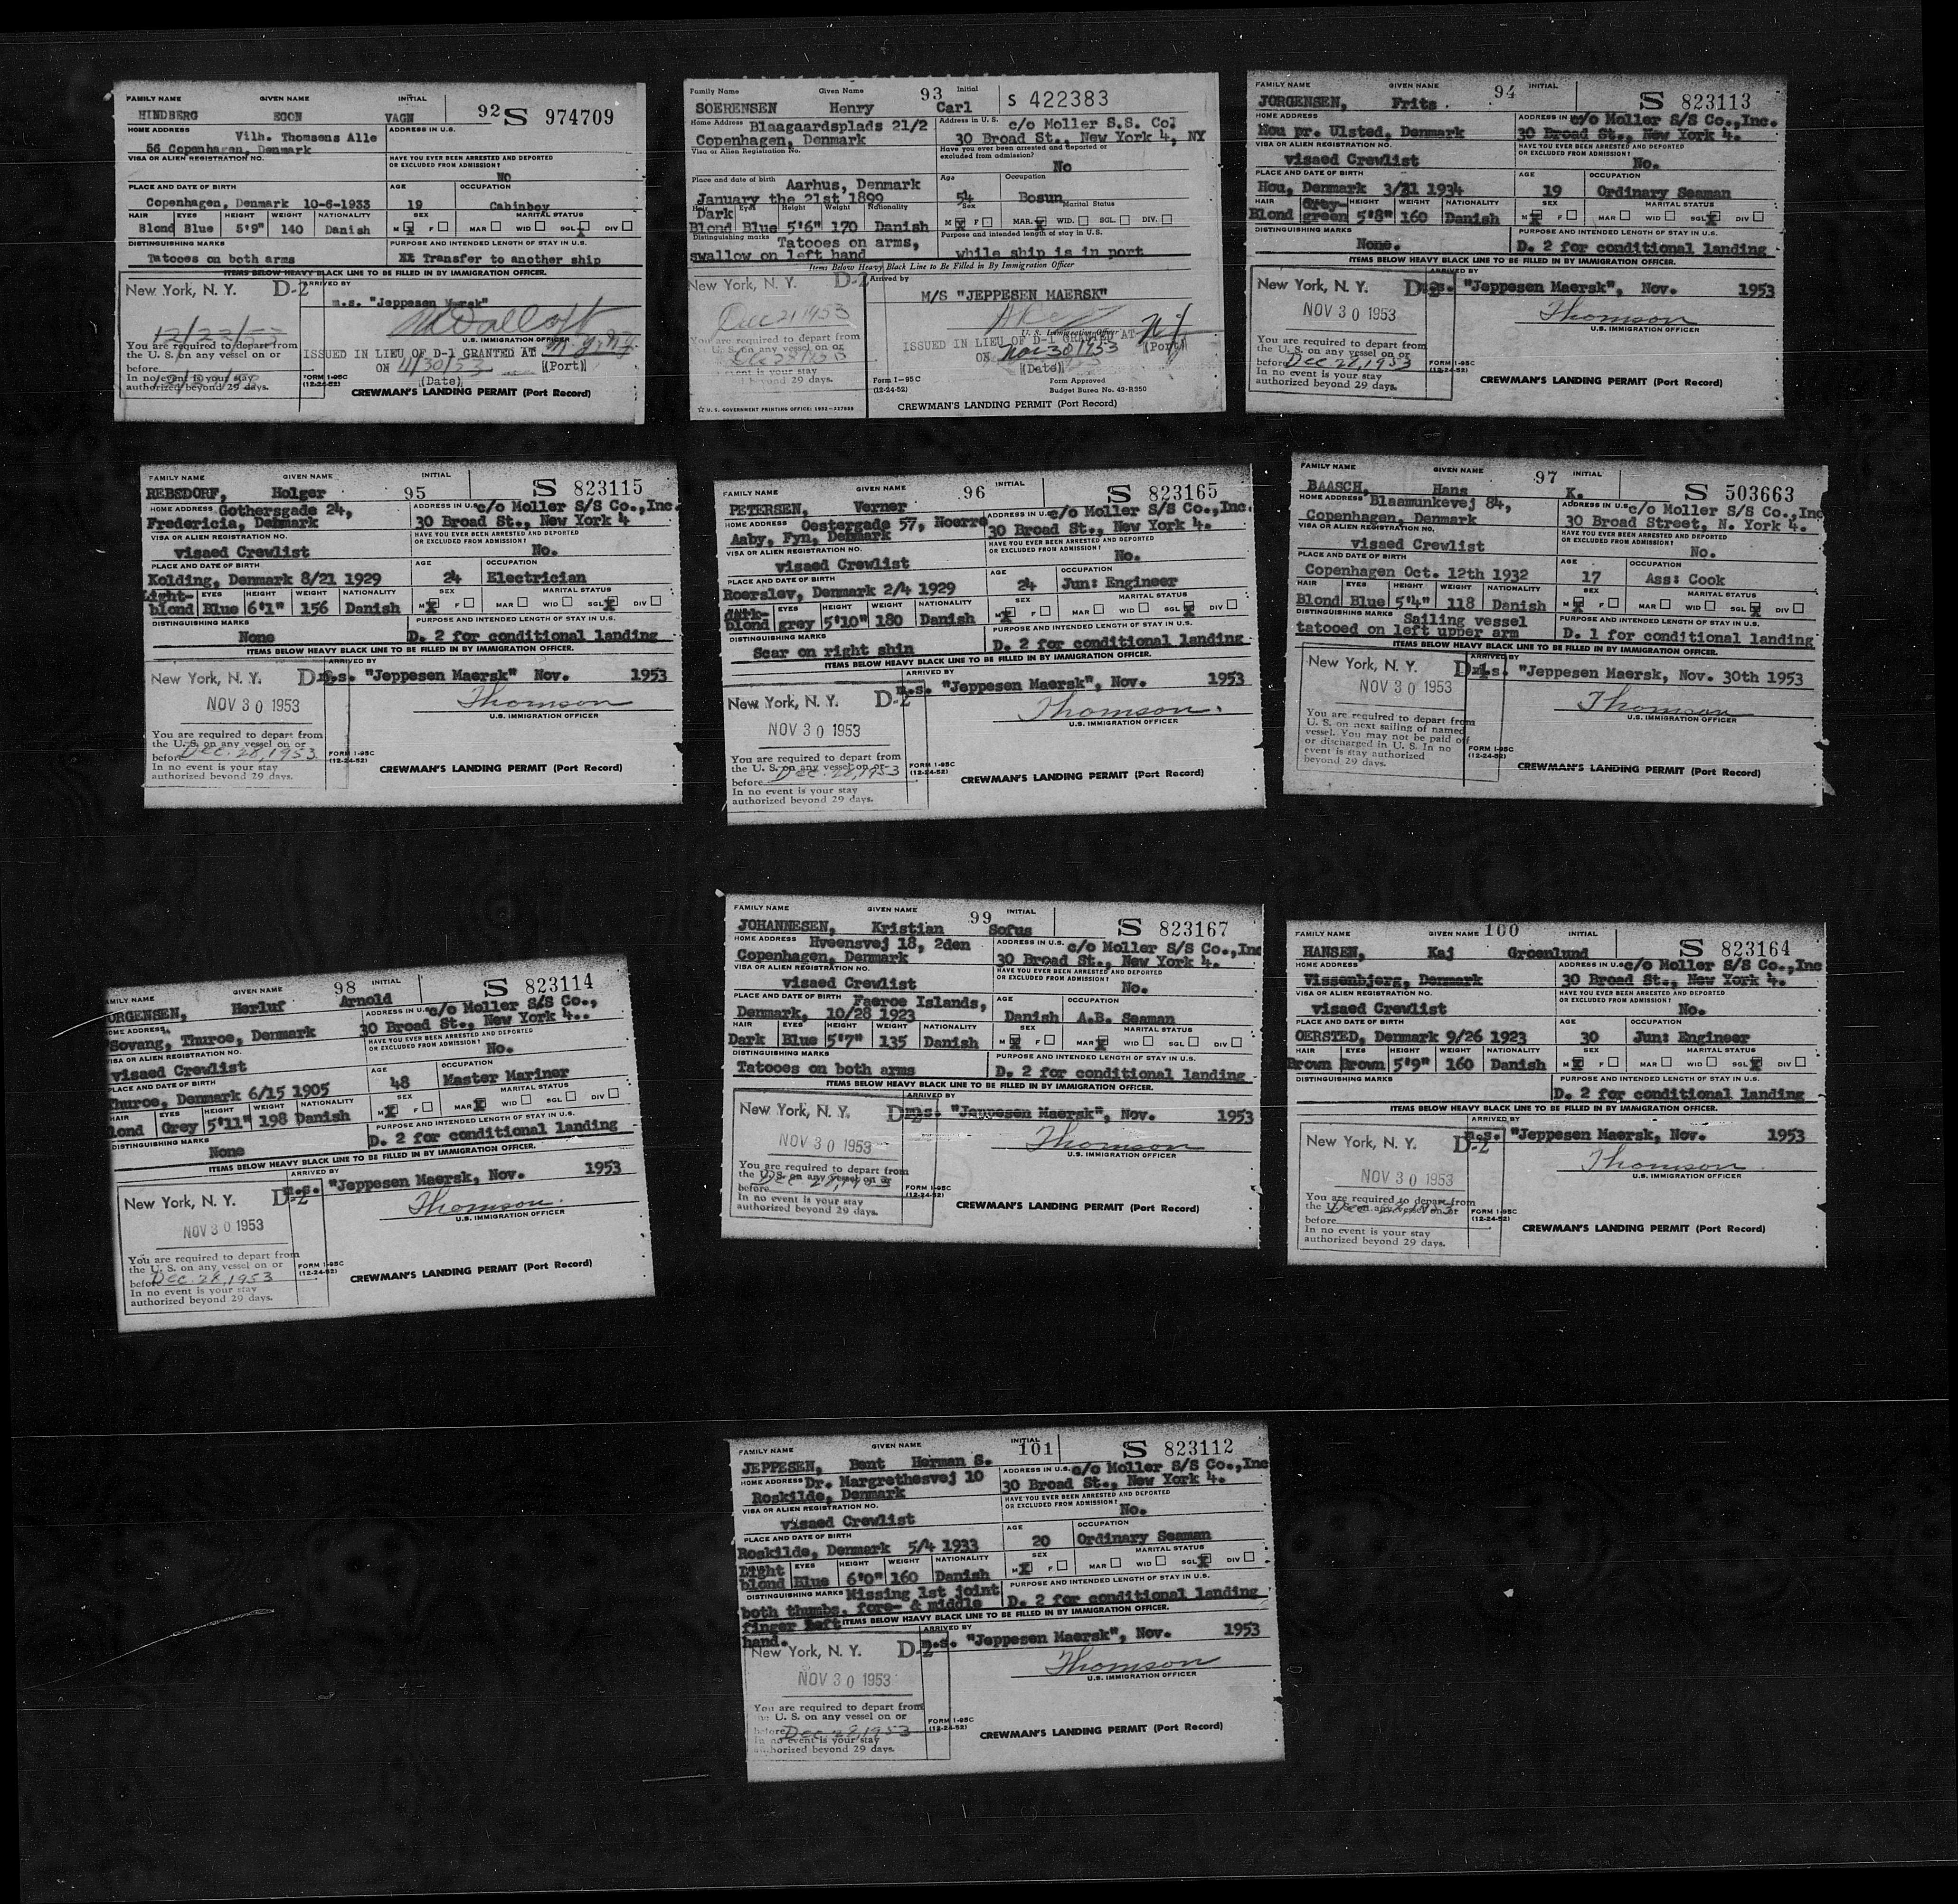 FAMILY NAME GIVEN NAME INITIAL 92 S 974709
HINDBERG EGON VAGN
HOME ADDRESS Vilh. Thomsens Alle ADDRESS IN U.S.
56 Copenhagen, Denmark
VISA OR ALIEN REGISTRATION NO. HAVE YOU EVER BEEN ARRESTED AND DEPORTED OR EXCLUDED FROM ADMISSION?
NO
PLACE AND DATE OF BIRTH AGE OCCUPATION
Copenhagen, Denmark 10-6-1933 19 Cabinboy
HAIR EYES HEIGHT WEIGHT NATIONALITY SEX MARITAL STATUS
Blond Blue 5'9" 140 Danish M X F MAR WID SGL X DIV
DISTINGUISHING MARKS PURPOSE AND INTENDED LENGTH OF STAY IN U.S.
Tatooes on both arms Transfer to another ship
ITEMS BELOW HEAVY BLACK LINE TO BE FILLED IN BY IMMIGRATION OFFICER.
New York, N. Y. D-2 ARRIVED BY
m.s. "Jeppesen Mærsk"
U.S. IMMIGRATION OFFICER
You are required to depart from
the U. S. on any vessel on or
before
In no event is your stay
authorized beyond 29 days.
ISSUED IN LIEU OF D-1 GRANTED AT N.Y. N.Y.
ON 11/30/53 (Port)
(Date)
FORM I-95C
(12-24-52)
CREWMAN'S LANDING PERMIT (Port Record)
Family Name Given Name 93 Initial S 422383
SOERENSEN Henry Carl
Home Address Blaagaardsplads 21/2 Address in U. S. c/o Moller S.S. Co.
Copenhagen, Denmark 30 Broad St., New York 4, NY
Visa or Alien Registration No. Have you ever been arrested and deported or excluded from admission?
No
Place and date of birth Aarhus, Denmark Age Occupation
January the 21st 1899 54 Bosun
Hair Eyes Height Weight Nationality Sex Marital Status
Dark
Blond Blue 5'6" 170 Danish M X F MAR. X WID. SGL DIV.
Distinguishing marks Tatooes on arms, Purpose and intended length of stay in U.S.
swallow on left hand while ship is in port
Items Below Heavy Black Line to Be Filled in By Immigration Officer
New York, N. Y. D-2 Arrived by
M/S "JEPPESEN MAERSK"
Dec 21 1953
U. S. Immigration Officer
You are required to depart from
the U. S. on any vessel on or
In no event is your stay
beyond 29 days.
ISSUED IN LIEU OF D-1 GRANTED AT NY
ON Nov 30 1953 (Port)
(Date)
Form I-95 C
(12-24-52)
Form Approved
Budget Bureau No. 43-R350
☆ U. S. GOVERNMENT PRINTING OFFICE: 1952
CREWMAN'S LANDING PERMIT (Port Record)
FAMILY NAME GIVEN NAME 94 INITIAL S 823113
JORGENSEN, Frits
HOME ADDRESS ADDRESS IN U.S. c/o Moller S/S Co.,Inc.
Hou pr. Ulsted, Denmark 30 Broad St., New York 4.
VISA OR ALIEN REGISTRATION NO. HAVE YOU EVER BEEN ARRESTED AND DEPORTED OR EXCLUDED FROM ADMISSION?
visaed Crewlist No.
PLACE AND DATE OF BIRTH AGE OCCUPATION
Hou, Denmark 3/21 1934 19 Ordinary Seaman
HAIR EYES HEIGHT WEIGHT NATIONALITY SEX MARITAL STATUS
Blond Grey-green 5'8" 160 Danish M X F MAR WID SGL X DIV
DISTINGUISHING MARKS PURPOSE AND INTENDED LENGTH OF STAY IN U.S.
None. D. 2 for conditional landing
ITEMS BELOW HEAVY BLACK LINE TO BE FILLED IN BY IMMIGRATION OFFICER.
New York, N. Y. D-2 ARRIVED BY
m.s. "Jeppesen Maersk", Nov. 1953
NOV 30 1953 Thomson
U.S. IMMIGRATION OFFICER
You are required to depart from
the U. S. on any vessel on or
before Dec 28, 1953
In no event is your stay
authorized beyond 29 days.
FORM I-95C
(12-24-52)
CREWMAN'S LANDING PERMIT (Port Record)
FAMILY NAME GIVEN NAME INITIAL 95 S 823115
REBSDORF, Holger
HOME ADDRESS Gothersgade 24, ADDRESS IN U.S. c/o Moller S/S Co.,Inc.
Fredericia, Denmark 30 Broad St., New York 4
VISA OR ALIEN REGISTRATION NO. HAVE YOU EVER BEEN ARRESTED AND DEPORTED OR EXCLUDED FROM ADMISSION?
visaed Crewlist No.
PLACE AND DATE OF BIRTH AGE OCCUPATION
Kolding, Denmark 8/21 1929 24 Electrician
EYES HEIGHT WEIGHT NATIONALITY SEX MARITAL STATUS
Light-blond Blue 6'1" 156 Danish M X F MAR WID SGL X DIV
DISTINGUISHING MARKS PURPOSE AND INTENDED LENGTH OF STAY IN U.S.
None D. 2 for conditional landing
ITEMS BELOW HEAVY BLACK LINE TO BE FILLED IN BY IMMIGRATION OFFICER.
New York, N. Y. D-2 ARRIVED BY
m.s. "Jeppesen Maersk" Nov. 1953
NOV 30 1953 Thomson
U.S. IMMIGRATION OFFICER
You are required to depart from
the U. S. on any vessel on or
before Dec. 28, 1953.
In no event is your stay
authorized beyond 29 days.
FORM I-95C
(12-24-52)
CREWMAN'S LANDING PERMIT (Port Record)
FAMILY NAME GIVEN NAME 96 INITIAL S 823165
PETERSEN, Verner
HOME ADDRESS Oestergade 57, Noerre ADDRESS IN U.S. c/o Moller S/S Co.,Inc.
Aaby, Fyn, Denmark 30 Broad St., New York 4.
VISA OR ALIEN REGISTRATION NO. HAVE YOU EVER BEEN ARRESTED AND DEPORTED OR EXCLUDED FROM ADMISSION?
visaed Crewlist No.
PLACE AND DATE OF BIRTH AGE OCCUPATION
Roerslev, Denmark 2/4 1929 24 Jun: Engineer
EYES HEIGHT WEIGHT NATIONALITY SEX MARITAL STATUS
dark-blond grey 5'10" 180 Danish M X F MAR WID SGL X DIV
DISTINGUISHING MARKS PURPOSE AND INTENDED LENGTH OF STAY IN U.S.
Scar on right shin D. 2 for conditional landing
ITEMS BELOW HEAVY BLACK LINE TO BE FILLED IN BY IMMIGRATION OFFICER.
New York, N. Y. D-2 ARRIVED BY
m.s. "Jeppesen Maersk", Nov. 1953
NOV 30 1953 Thomson.
U.S. IMMIGRATION OFFICER
You are required to depart from
the U. S. on any vessel on or
before Dec. 28, 1953
In no event is your stay
authorized beyond 29 days.
FORM I-95C
(12-24-52)
CREWMAN'S LANDING PERMIT (Port Record)
FAMILY NAME GIVEN NAME 97 INITIAL S 503663
BAASCH, Hans K.
HOME ADDRESS Blaamunkevej 84, ADDRESS IN U.S. c/o Moller S/S Co.,Inc
Copenhagen, Denmark 30 Broad Street, N. York 4.
VISA OR ALIEN REGISTRATION NO. HAVE YOU EVER BEEN ARRESTED AND DEPORTED OR EXCLUDED FROM ADMISSION?
visaed Crewlist No.
PLACE AND DATE OF BIRTH AGE OCCUPATION
Copenhagen Oct. 12th 1932 17 Ass: Cook
HAIR EYES HEIGHT WEIGHT NATIONALITY SEX MARITAL STATUS
Blond Blue 5'4" 118 Danish M X F MAR WID SGL X DIV
DISTINGUISHING MARKS Sailing vessel PURPOSE AND INTENDED LENGTH OF STAY IN U.S.
tatooed on left upper arm D. 1 for conditional landing
ITEMS BELOW HEAVY BLACK LINE TO BE FILLED IN BY IMMIGRATION OFFICER.
New York, N. Y. D-1 ARRIVED BY
m.s. "Jeppesen Maersk, Nov. 30th 1953
NOV 30 1953 Thomson
U.S. IMMIGRATION OFFICER
You are required to depart from
U. S. on next sailing of named
vessel. You may not be paid off
or discharged in U. S. In no
event is stay authorized
beyond 29 days.
FORM I-95C
(12-24-52)
CREWMAN'S LANDING PERMIT (Port Record)
FAMILY NAME GIVEN NAME 98 INITIAL S 823114
JORGENSEN, Herluf Arnold
HOME ADDRESS ADDRESS IN U.S. c/o Moller S/S Co.,
"Sovang, Thuroe, Denmark 30 Broad St., New York 4..
VISA OR ALIEN REGISTRATION NO. HAVE YOU EVER BEEN ARRESTED AND DEPORTED OR EXCLUDED FROM ADMISSION?
visaed Crewlist No.
PLACE AND DATE OF BIRTH AGE OCCUPATION
Thuroe, Denmark 6/15 1905 48 Master Mariner
HAIR EYES HEIGHT WEIGHT NATIONALITY SEX MARITAL STATUS
Blond Grey 5'11" 198 Danish M X F MAR X WID SGL DIV
DISTINGUISHING MARKS PURPOSE AND INTENDED LENGTH OF STAY IN U.S.
None D. 2 for conditional landing
ITEMS BELOW HEAVY BLACK LINE TO BE FILLED IN BY IMMIGRATION OFFICER.
New York, N. Y. D-2 ARRIVED BY
m.s. "Jeppesen Maersk, Nov. 1953
NOV 30 1953 Thomson.
U.S. IMMIGRATION OFFICER
You are required to depart from
the U. S. on any vessel on or
before Dec. 28, 1953
In no event is your stay
authorized beyond 29 days.
FORM I-95C
(12-24-52)
CREWMAN'S LANDING PERMIT (Port Record)
FAMILY NAME GIVEN NAME 99 INITIAL S 823167
JOHANNESEN, Kristian Sofus
HOME ADDRESS Hveensvej 18, 2den ADDRESS IN U.S. c/o Moller S/S Co.,Inc
Copenhagen, Denmark 30 Broad St., New York 4.
VISA OR ALIEN REGISTRATION NO. HAVE YOU EVER BEEN ARRESTED AND DEPORTED OR EXCLUDED FROM ADMISSION?
visaed Crewlist No.
PLACE AND DATE OF BIRTH Faeroe Islands, AGE OCCUPATION
Denmark, 10/28 1923 Danish A.B. Seaman
HAIR EYES HEIGHT WEIGHT NATIONALITY SEX MARITAL STATUS
Dark Blue 5'7" 135 Danish M X F MAR X WID SGL DIV
DISTINGUISHING MARKS PURPOSE AND INTENDED LENGTH OF STAY IN U.S.
Tatooes on both arms D. 2 for conditional landing
ITEMS BELOW HEAVY BLACK LINE TO BE FILLED IN BY IMMIGRATION OFFICER.
New York, N. Y. D-2 ARRIVED BY
m.s. "Jeppesen Maersk", Nov. 1953
NOV 30 1953 Thomson
U.S. IMMIGRATION OFFICER
You are required to depart from
the U. S. on any vessel on or
before Dec 28, 1953
In no event is your stay
authorized beyond 29 days.
FORM I-95C
(12-24-52)
CREWMAN'S LANDING PERMIT (Port Record)
FAMILY NAME GIVEN NAME 100 INITIAL S 823164
HANSEN, Kaj Groenlund
HOME ADDRESS ADDRESS IN U.S. c/o Moller S/S Co.,Inc
Vissenbjerg, Denmark 30 Broad St., New York 4.
VISA OR ALIEN REGISTRATION NO. HAVE YOU EVER BEEN ARRESTED AND DEPORTED OR EXCLUDED FROM ADMISSION?
visaed Crewlist No.
PLACE AND DATE OF BIRTH AGE OCCUPATION
OERSTED, Denmark 9/26 1923 30 Jun: Engineer
HAIR EYES HEIGHT WEIGHT NATIONALITY SEX MARITAL STATUS
Brown Brown 5'9" 160 Danish M X F MAR WID SGL X DIV
DISTINGUISHING MARKS PURPOSE AND INTENDED LENGTH OF STAY IN U.S.
D. 2 for conditional landing
ITEMS BELOW HEAVY BLACK LINE TO BE FILLED IN BY IMMIGRATION OFFICER.
New York, N. Y. D-2 ARRIVED BY
m.s. "Jeppesen Maersk, Nov. 1953
NOV 30 1953 Thomson
U.S. IMMIGRATION OFFICER
You are required to depart from
the U. S. on any vessel on or
before Dec 28, 1953
In no event is your stay
authorized beyond 29 days.
FORM I-95C
(12-24-52)
CREWMAN'S LANDING PERMIT (Port Record)
FAMILY NAME GIVEN NAME INITIAL 101 S 823112
JEPPESEN, Bent Herman S.
HOME ADDRESS Dr. Margrethesvej 10 ADDRESS IN U.S. c/o Moller S/S Co.,Inc
Roskilde, Denmark 30 Broad St., New York 4.
VISA OR ALIEN REGISTRATION NO. HAVE YOU EVER BEEN ARRESTED AND DEPORTED OR EXCLUDED FROM ADMISSION?
visaed Crewlist No.
PLACE AND DATE OF BIRTH AGE OCCUPATION
Roskilde, Denmark 5/4 1933 20 Ordinary Seaman
EYES HEIGHT WEIGHT NATIONALITY SEX MARITAL STATUS
Light blond Blue 6'0" 160 Danish M X F MAR WID SGL X DIV
DISTINGUISHING MARKS Missing 1st joint PURPOSE AND INTENDED LENGTH OF STAY IN U.S.
both thumbs, fore- & middle D. 2 for conditional landing
finger left ITEMS BELOW HEAVY BLACK LINE TO BE FILLED IN BY IMMIGRATION OFFICER.
hand.
New York, N. Y. D-2 ARRIVED BY
m.s. "Jeppesen Maersk", Nov. 1953
NOV 30 1953 Thomson
U.S. IMMIGRATION OFFICER
You are required to depart from
the U. S. on any vessel on or
before Dec 28, 1953
In no event is your stay
authorized beyond 29 days.
FORM I-95C
(12-24-52)
CREWMAN'S LANDING PERMIT (Port Record)